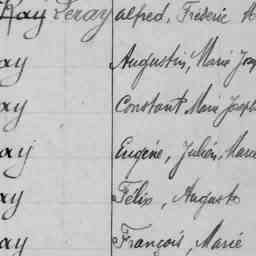 Ray Leray alfred, Fréderic M
ay Augustin, Marie Jose
ay Constant Marie Joseph
ay Eugène, Julien, Marie
ay Félix, Auguste
ay François, Marie